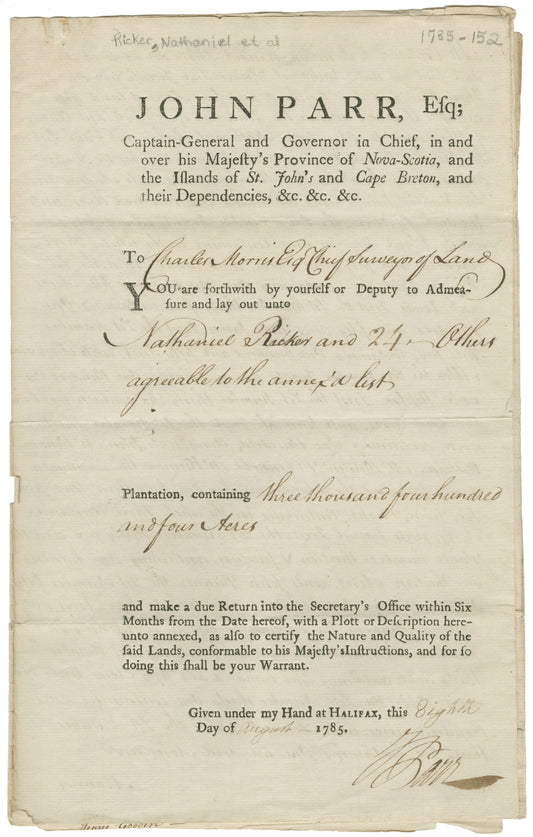 Ricker, Nathaniel et al
1785-152
JOHN PARR, Eſq;
Captain-General and Governor in Chief, in and
over his Majeſty's Province of Nova-Scotia, and
the Iſlands of St. John's and Cape Breton, and
their Dependencies, &c. &c. &c.
To Charles Morris Esq Chief Surveyor of Land
YOU are forthwith by yourſelf or Deputy to Admea-
ſure and lay out unto
Nathaniel Ricker and 24 Others
agreeable to the annex'd list
Plantation, containing three thousand four hundred
and four Acres
and make a due Return into the Secretary's Office within Six
Months from the Date hereof, with a Plott or Deſcription here-
unto annexed, as alſo to certify the Nature and Quality of the
ſaid Lands, conformable to his Majeſty's Inſtructions, and for ſo
doing this ſhall be your Warrant.
Given under my Hand at HALIFAX, this Eighth
Day of August 1785.
J Parr